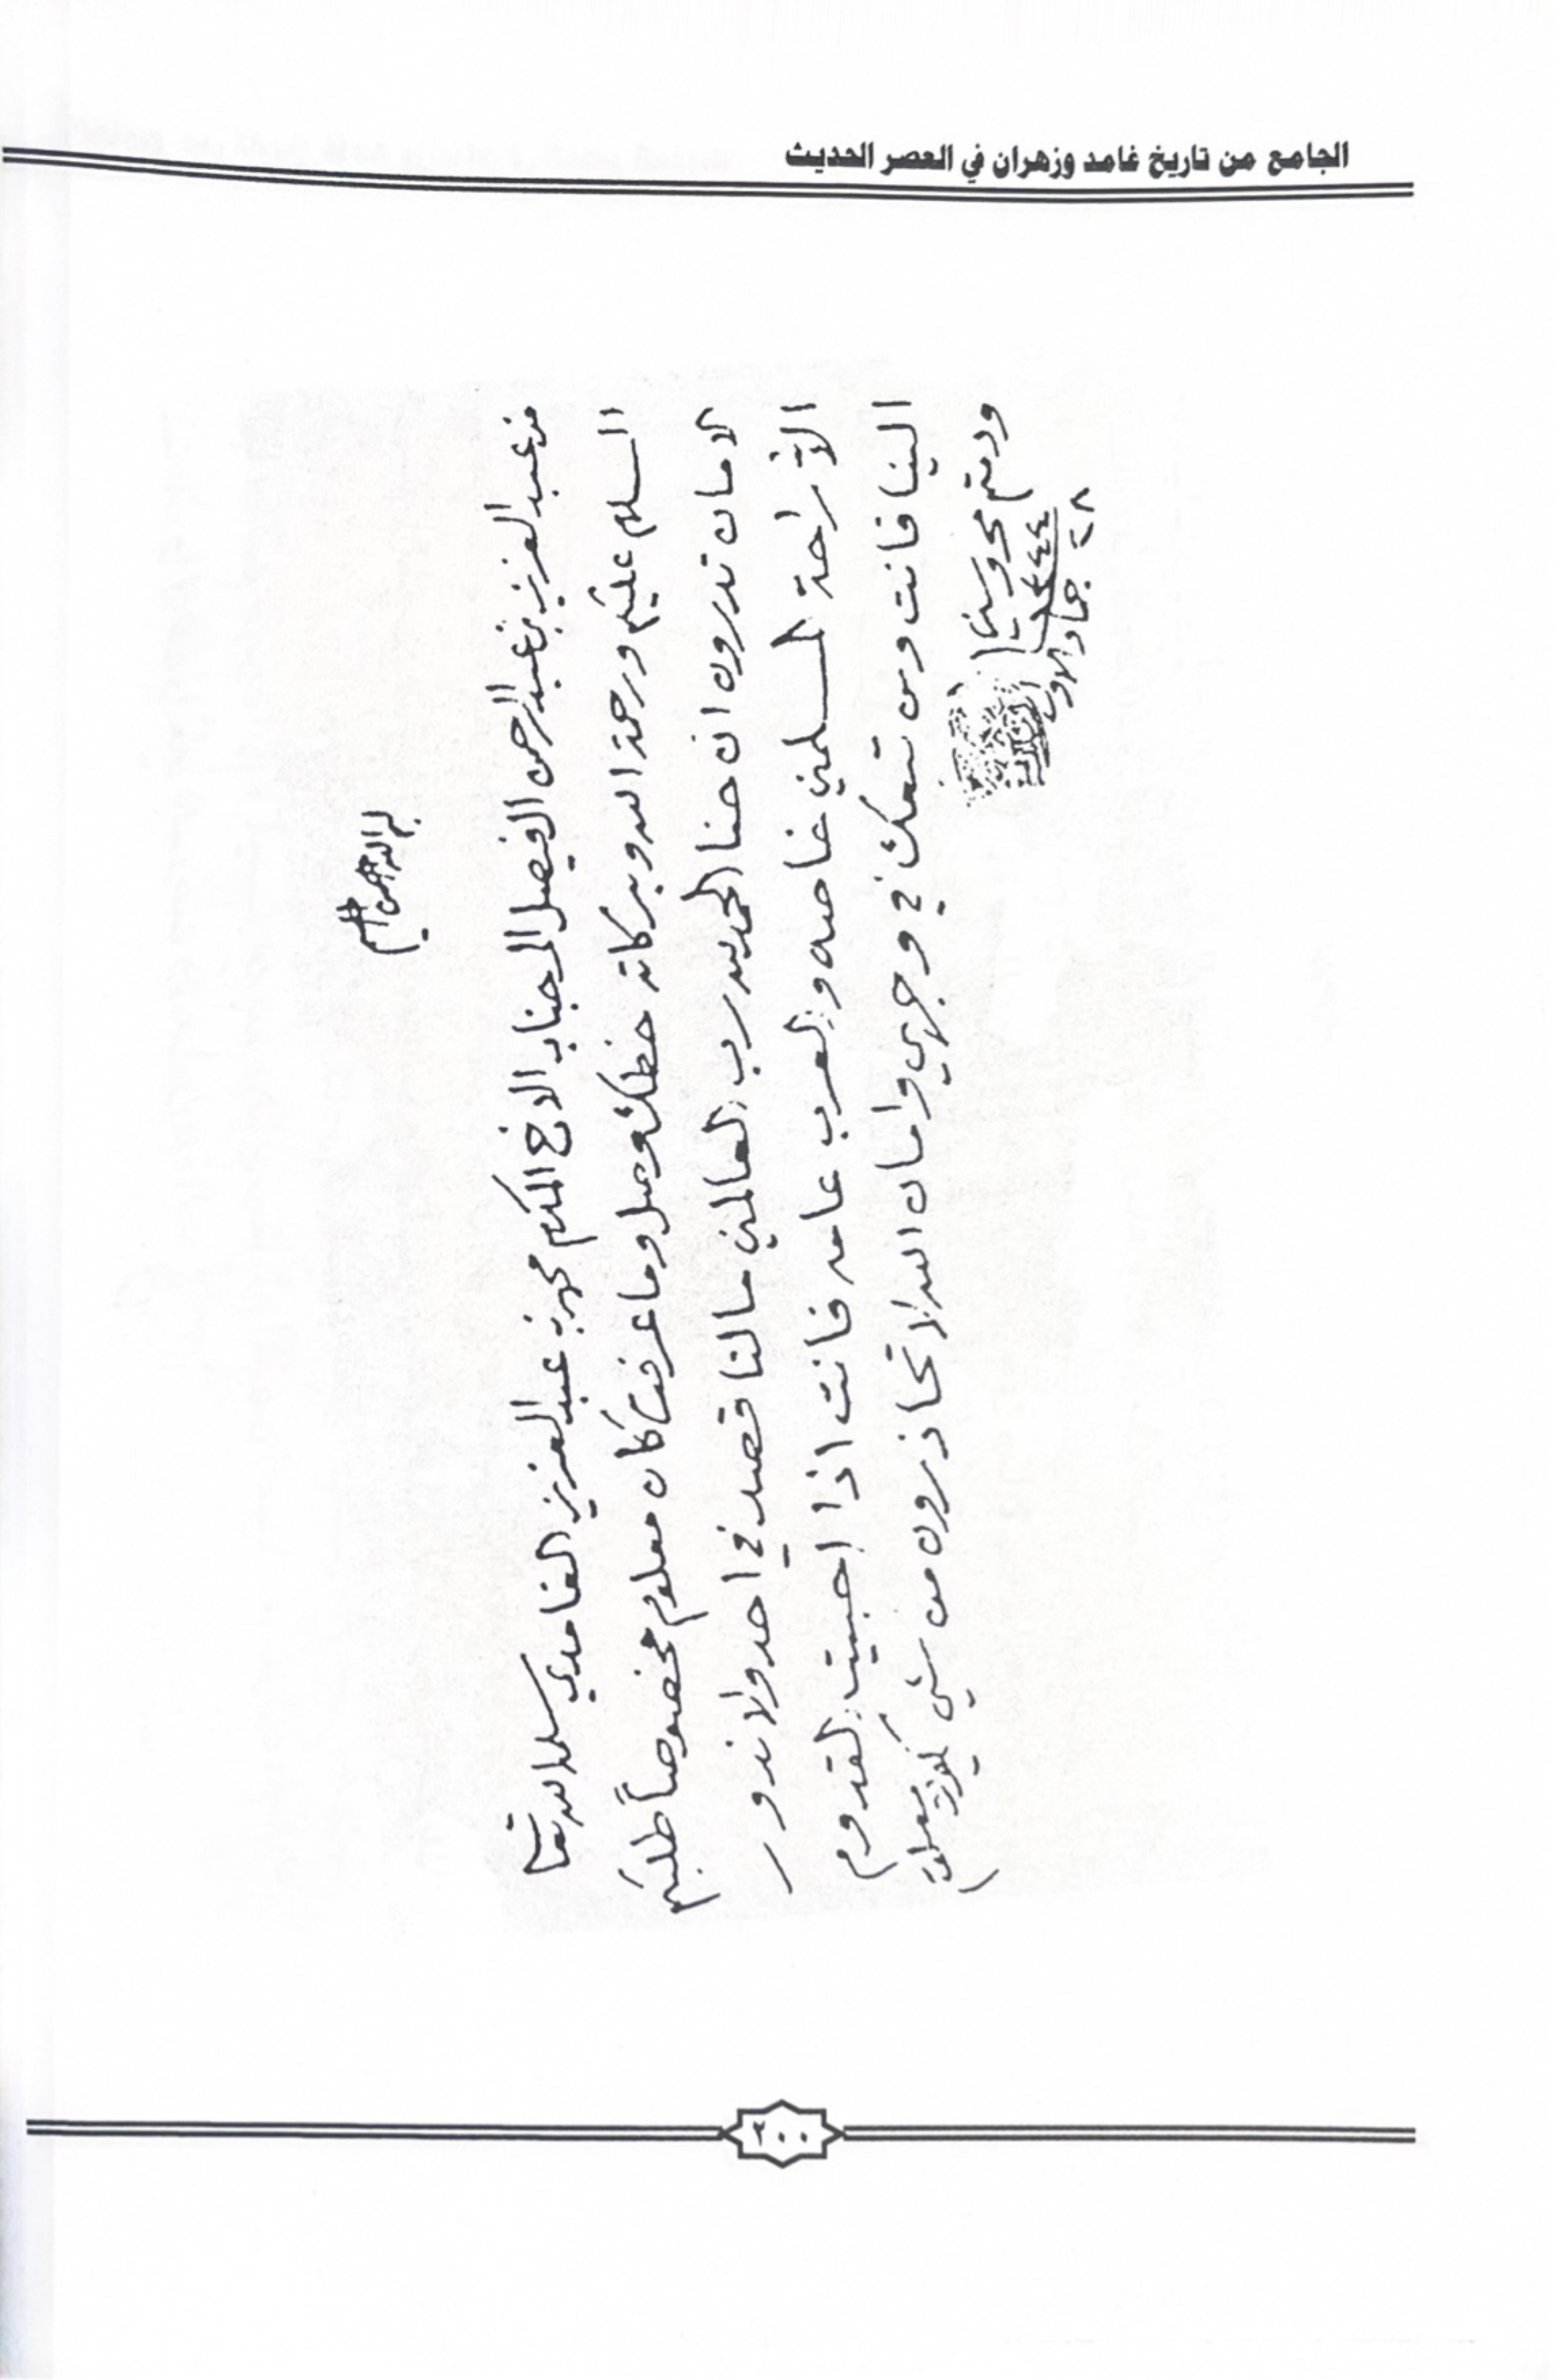 الجامع من تاريخ غامد وزهران في العصر الحديث
بسم الله الرحمن الرحيم
من عبد العزيز بن عبد الرحمن الفيصل الى جناب الاخ المكرم محمد بن عبد العزيز الغامدي سلمه الله تعا
السلام عليكم ورحمة الله وبركاته خطك وصل وما عرفت كان معلوم مخصوصاً طلبكم
الامان تدرون ان حنا الحمد لله رب العالمين ما لنا قصد في احد ولا ندور
الا راحة المسلمين خاصه والعرب عامه فانت اذا احبيت القدوم
الينا فانت ومن تبعك في وجهي وامان الله لا تحاذرون من شي يكون معلوم
ودمتم محروسين
١٣٤٤
٢٨ جماد الاول
٤٠٠